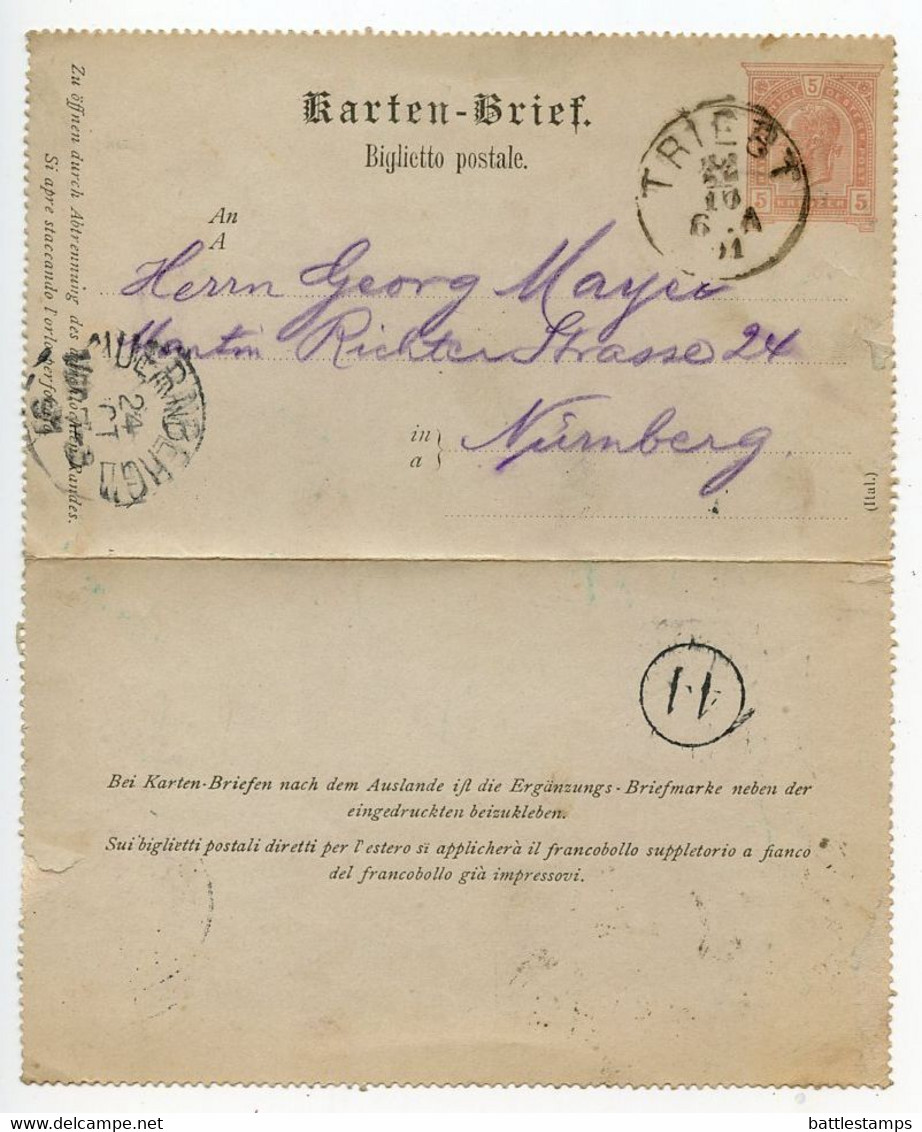 Karten-Brief.
Biglietto postale.
5
5 KREUZER 5
TRIEST
10
91
An
A
Herrn Georg Mayer
Martin Richter Strasse 24
in
a
Nürnberg.
(Ital.)
Zu öffnen durch Abtrennung des Randes.
Si apre staccando l'orlo
NUERNBERG II
24
OCT
91
Bei Karten-Briefen nach dem Auslande ist die Ergänzungs-Briefmarke neben der
eingedruckten beizukleben.
Sui biglietti postali diretti per l'estero si applicherà il francobollo suppletorio a fianco
del francobollo già impressovi.
delcampe.net
battlestamps